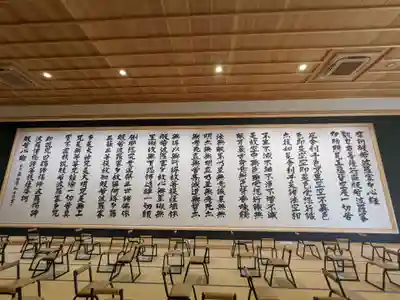 摩訶般若波羅蜜多心経
観自在菩薩行深般若波羅蜜多
時照見五蘊皆空度一切苦
厄舎利子色不異空空不異色
色即是空空即是色受想行識
亦復如是舎利子是諸法空相
不生不滅不垢不浄不増不減
是故空中無色無受想行識無
眼耳鼻舌身意無色声香味触
法無眼界乃至無意識界無無
明亦無無明尽乃至無老死亦
無老死尽無苦集滅道無智亦
無得以無所得故菩提薩埵依
般若波羅蜜多故心無罣礙無
罣礙故無有恐怖遠離一切顛
倒夢想究竟涅槃三世諸仏依
般若波羅蜜多故得阿耨多羅
三藐三菩提故知般若波羅蜜
多是大神呪是大明呪是無上
呪是無等等呪能除一切苦真
実不虚故説般若波羅蜜多呪
即説呪曰羯諦羯諦波羅羯諦
波羅僧羯諦菩提薩婆訶
般若心経